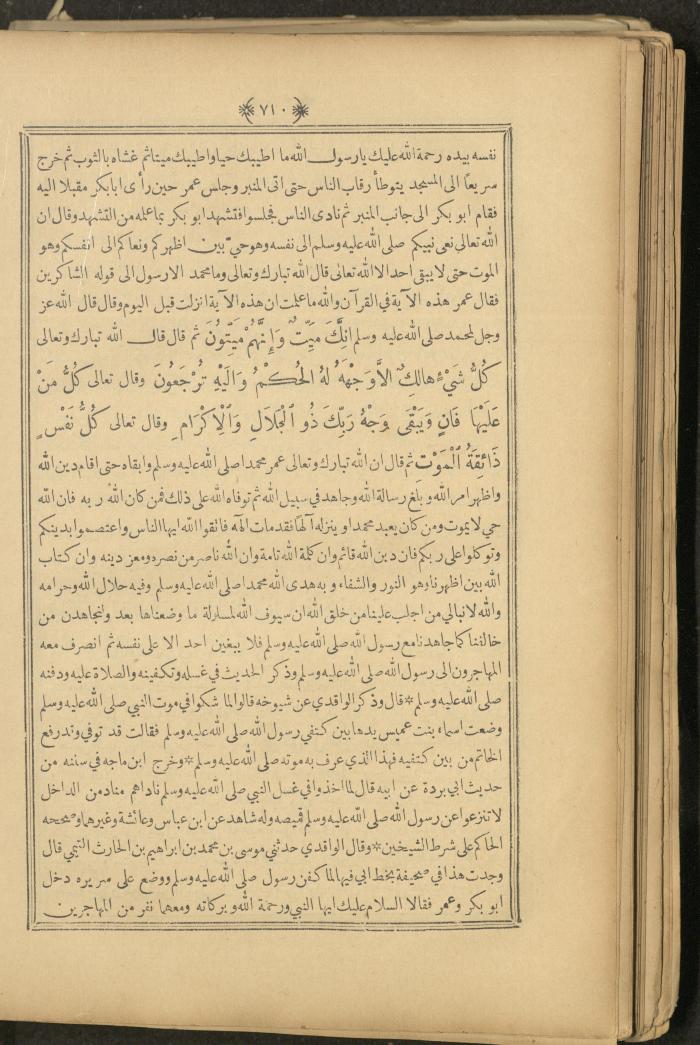 ٧١٠
نفسه بيده رحمة الله عليك يارسول الله ما اطيبك حيا واطيبك ميتا ثم غشاه بالثوب ثم خرج
سريعا الى المسجد يتوطأ رقاب الناس حتى اتى المنبر وجلس عمر حين رأى ابابكر مقبلا اليه
فقام ابو بكر الى جانب المنبر ثم نادى الناس فجلسوا فتشهد ابو بكر بما علمه من التشهد وقال ان
الله تعالى نعى نبيكم صلى الله عليه وسلم الى نفسه وهو حيّ بين اظهركم ونعاكم الى انفسكم وهو
الموت حتى لا يبقى احد الا الله تعالى قال الله تبارك وتعالى وما محمد الا رسول الى قوله الشاكرين
فقال عمر هذه الآية في القرآن والله ما علمت ان هذه الآية انزلت قبل اليوم وقال قال الله عز
وجل لمحمد صلى الله عليه وسلم اِنَّكَ مَيِّتٌ وَاِنَّهُمْ مَيِّتُونَ ثم قال قال الله تبارك وتعالى
كُلُّ شَيْءٍ هالِكٌ اِلاَّ وَجْهَهُ لَهُ الْحُكْمُ وَاِلَيْهِ تُرْجَعُونَ وقال تعالى كُلُّ مَنْ
عَلَيْهَا فَانٍ وَيَبْقَى وَجْهُ رَبِّكَ ذُو الْجَلَالِ وَالْاِكْرَامِ وقال تعالى كُلُّ نَفْسٍ
ذَائِقَةُ الْمَوْتِ ثم قال ان الله تبارك وتعالى عمر محمدا صلى الله عليه وسلم وابقاه حتى اقام دين الله
واظهر امر الله وبلغ رسالة الله وجاهد في سبيل الله ثم توفاه الله على ذلك فمن كان الله ربه فان الله
حي لا يموت ومن كان يعبد محمدا وينزله آلها فقد مات الهه فاتقوا الله ايها الناس واعتصموا بدينكم
وتوكلوا على ربكم فان دين الله قائم وان كلمة الله تامة وان الله ناصر من نصره ومعز دينه وان كتاب
الله بين اظهرنا وهو النور والشفاء وبه هدى الله محمدا صلى الله عليه وسلم وفيه حلال الله وحرامه
والله لا نبالي من اجلب علينا من خلق الله ان سيوف الله لمسلولة ما وضعناها بعد ولنجاهدن من
خالفنا كما جاهدنا مع رسول الله صلى الله عليه وسلم فلا يبغين احد الا على نفسه ثم انصرف معه
المهاجرون الى رسول الله صلى الله عليه وسلم وذكر الحديث في غسله وتكفينه والصلاة عليه ودفنه
صلى الله عليه وسلم * قال وذكر الواقدي عن شيوخه قالوا لما شكوا في موت النبي صلى الله عليه وسلم
وضعت اسماء بنت عميس يدها بين كتفي رسول الله صلى الله عليه وسلم فقالت قد توفي وقد رفع
الخاتم من بين كتفيه فهذا الذي عرف به موته صلى الله عليه وسلم * وخرج ابن ماجه في سننه من
حديث ابي بردة عن ابيه قال لما اخذوا في غسل النبي صلى الله عليه وسلم ناداهم مناد من الداخل
لا تنزعوا عن رسول الله صلى الله عليه وسلم قميصه وله شاهد عن ابن عباس وعائشة وغيرهما وصححه
الحاكم على شرط الشيخين * وقال الواقدي حدثني موسى بن محمد بن ابراهيم بن الحارث التيمي قال
وجدت هذا في صحيفة بخط ابي فيها لما كفن رسول صلى الله عليه وسلم ووضع على سريره دخل
ابو بكر وعمر فقالا السلام عليك ايها النبي ورحمة الله وبركاته ومعهما نفر من المهاجرين